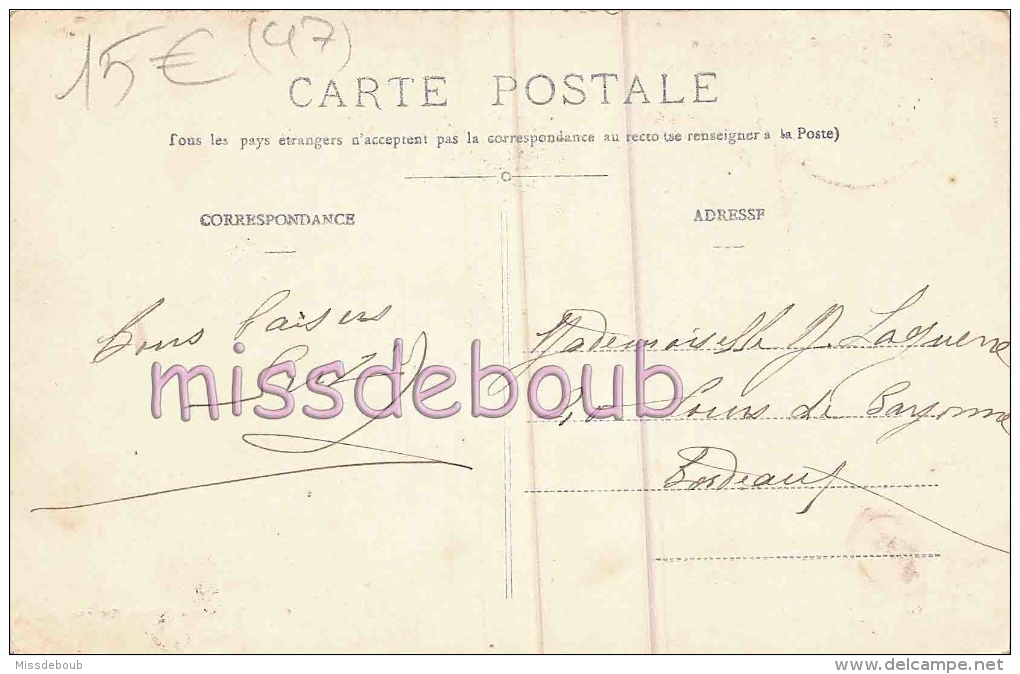 15 € (47)
CARTE POSTALE
Tous les pays étrangers n'acceptent pas la correspondance au recto (se renseigner à la Poste)
CORRESPONDANCE
Bons baisers
ADRESSE
Mademoiselle Y. Laguerre
Cours de Bayonne
Bordeaux
missdeboub
Missdeboub
www.delcampe.net